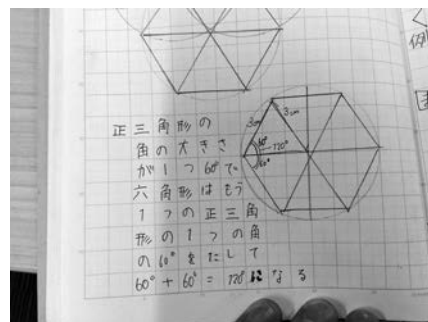 正三角形の
角の大きさ
が1つ60°で
六角形はもう
1つの正三角
形の1つの角
の60°をたして
60°+60°=120°になる
3cm
3cm
60°
120°
60°
例